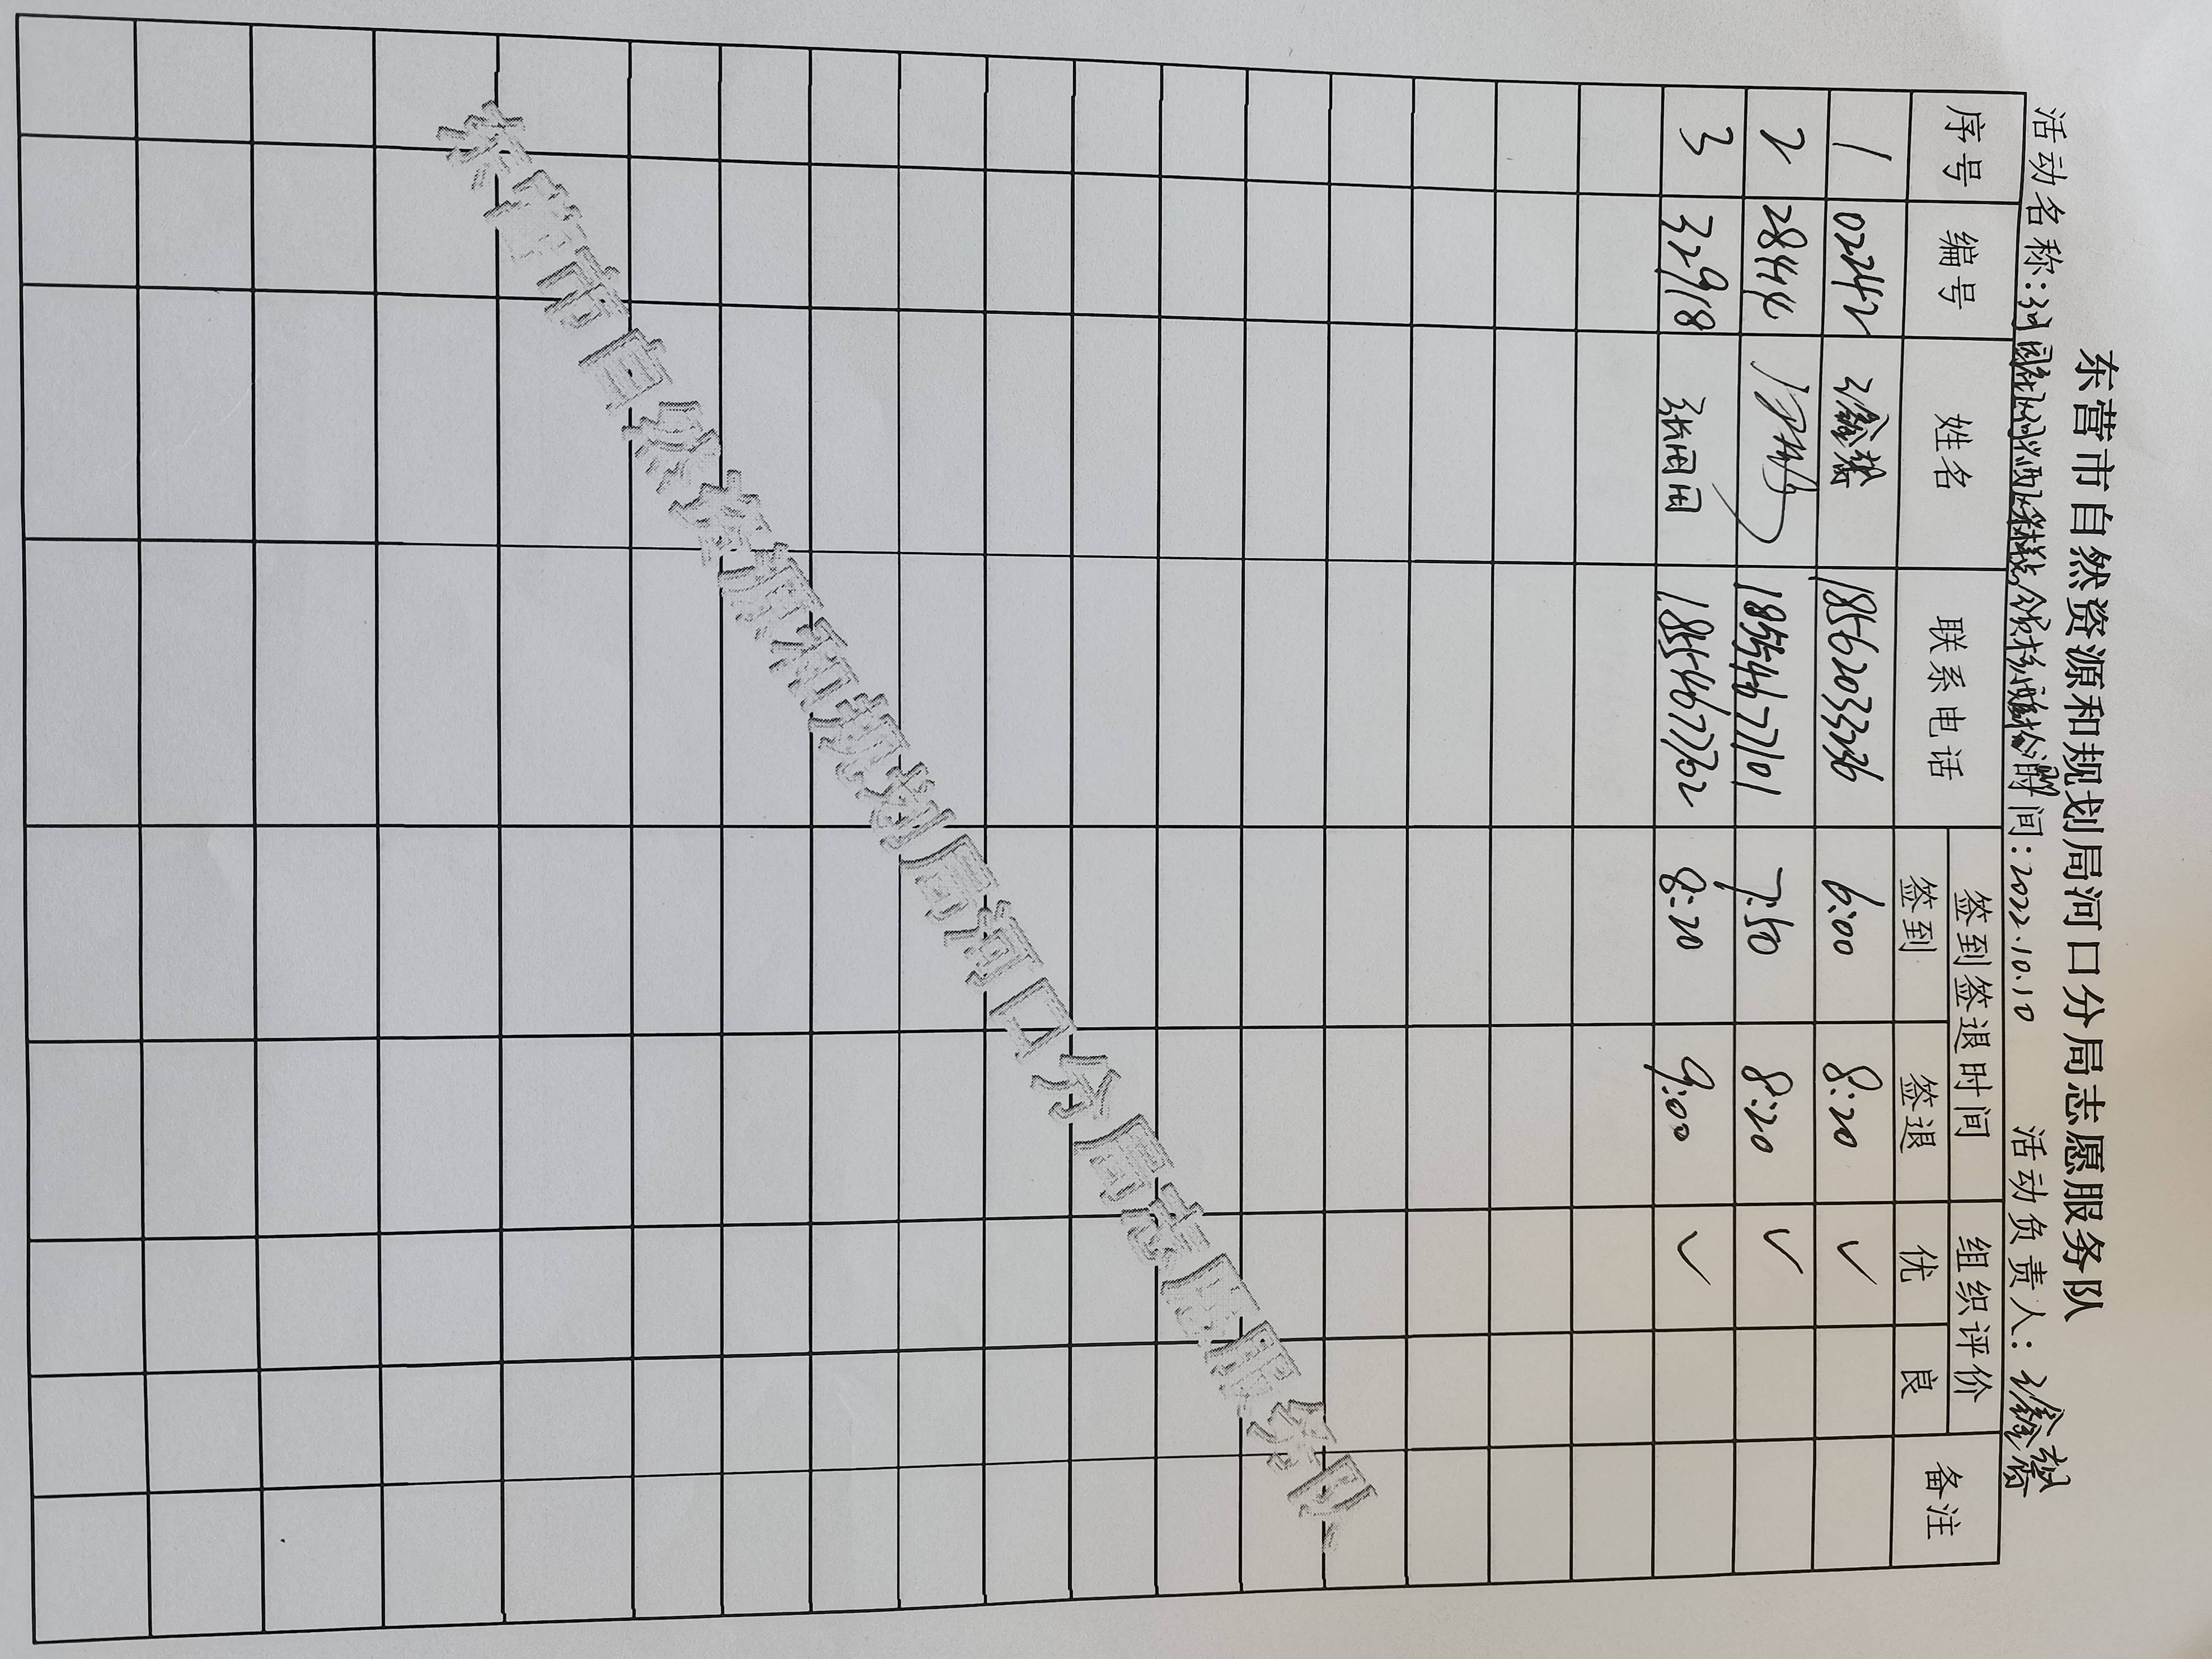 东营市自然资源和规划局河口分局志愿服务队
活动名称: 时间: 2022.10.10 活动负责人:
序号 编号 姓名 联系电话 签到签退时间 组织评价 备注
签到 签退 优 良
1 02242 18562033236 6:00 8:20 ✓
2 28444 18554677101 7:50 8:20 ✓
3 32918 张田田 18554677702 8:20 9:00 ✓
东营市自然资源和规划局河口分局志愿服务队